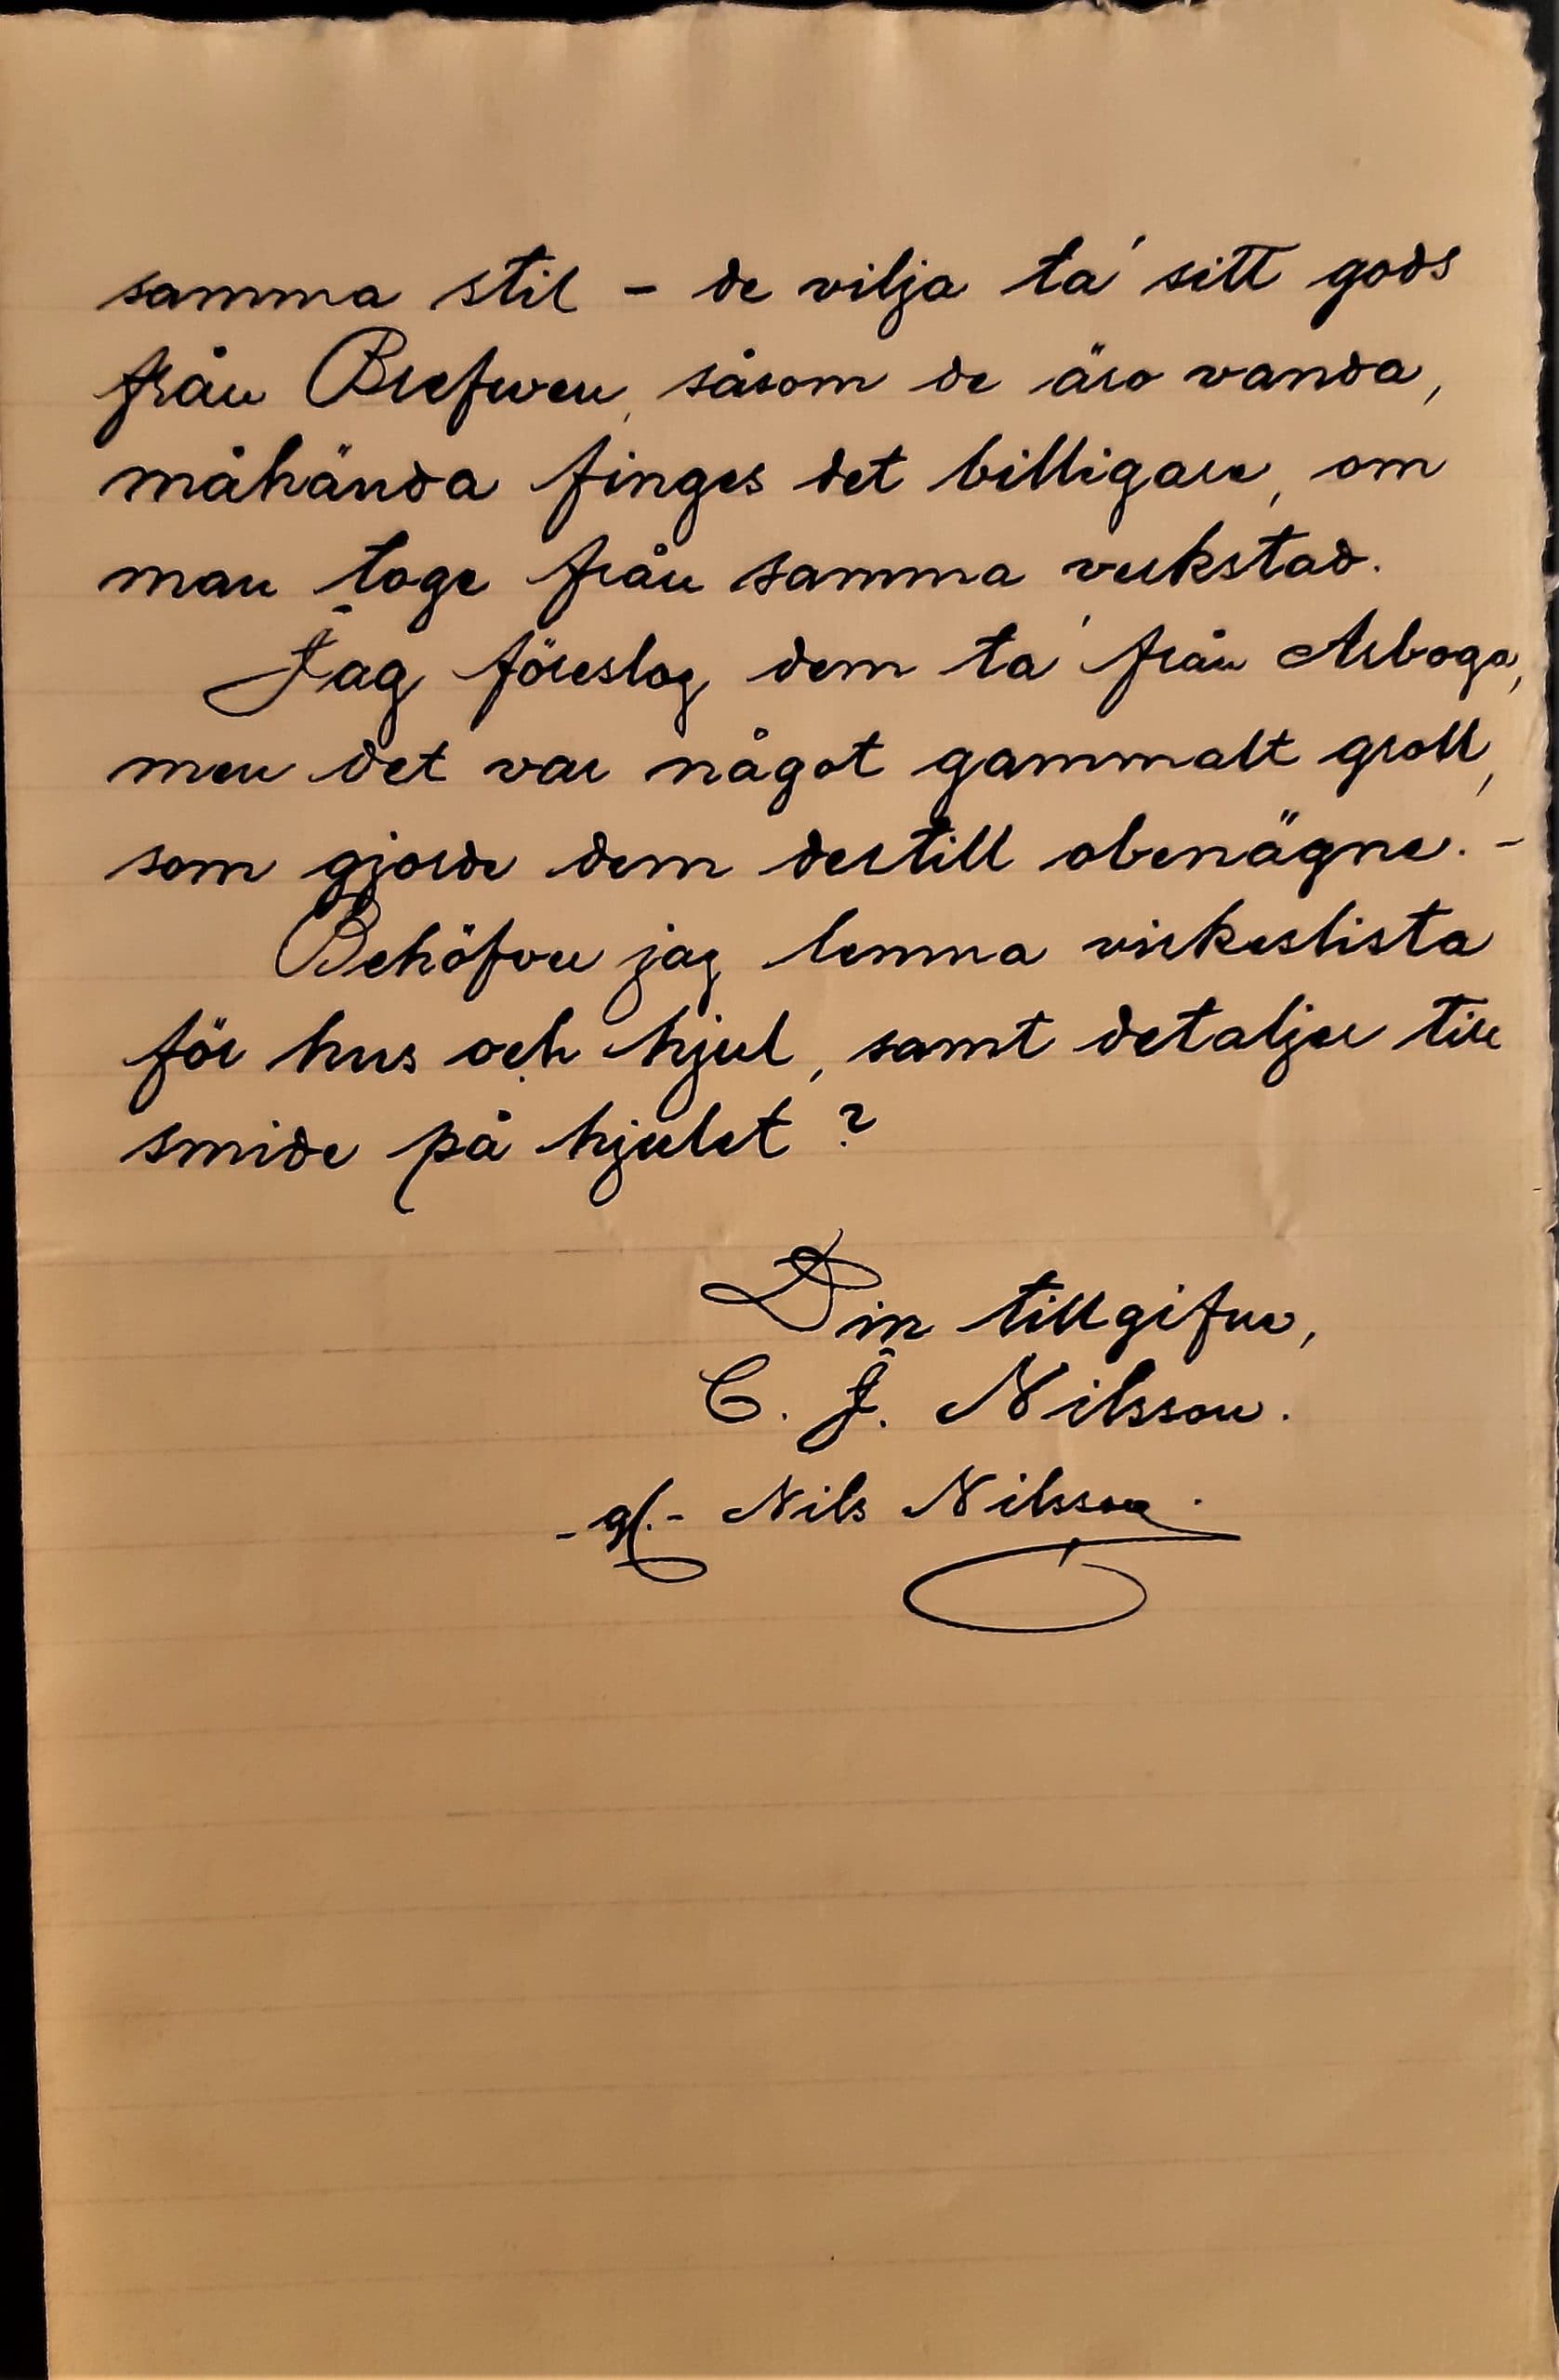 samma stil – de vilja ta' sitt gods
från Brefven, såsom de äro vanda,
måhända finges det billigare, om
man toge från samma verkstad.
Jag föreslog dem ta' från Arboga,
men det var något gammalt groll,
som gjorde dem dertill obenägne. –
Behöfver jag lemna virkeslista
för hus och hjul, samt detaljer till
smide på hjulet?
Din tillgifne,
C. J. Nilsson.
Nils Nilsson.